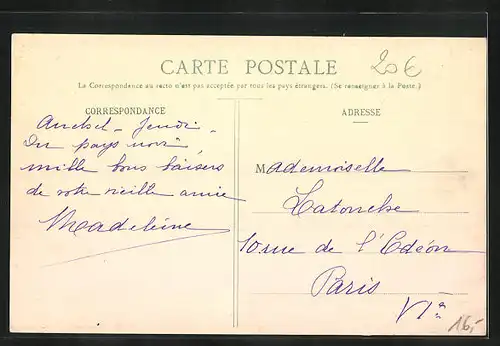 CARTE POSTALE
20€
La Correspondance au recto n'est pas acceptée par tous les pays étrangers. (Se renseigner à la Poste.)
CORRESPONDANCE
Jeudi
Du pays noir
mille bons baisers
de votre vieille amie
Madeleine
ADRESSE
Mademoiselle
Latouche
10 rue de l'Odéon
Paris
VIe
16,-